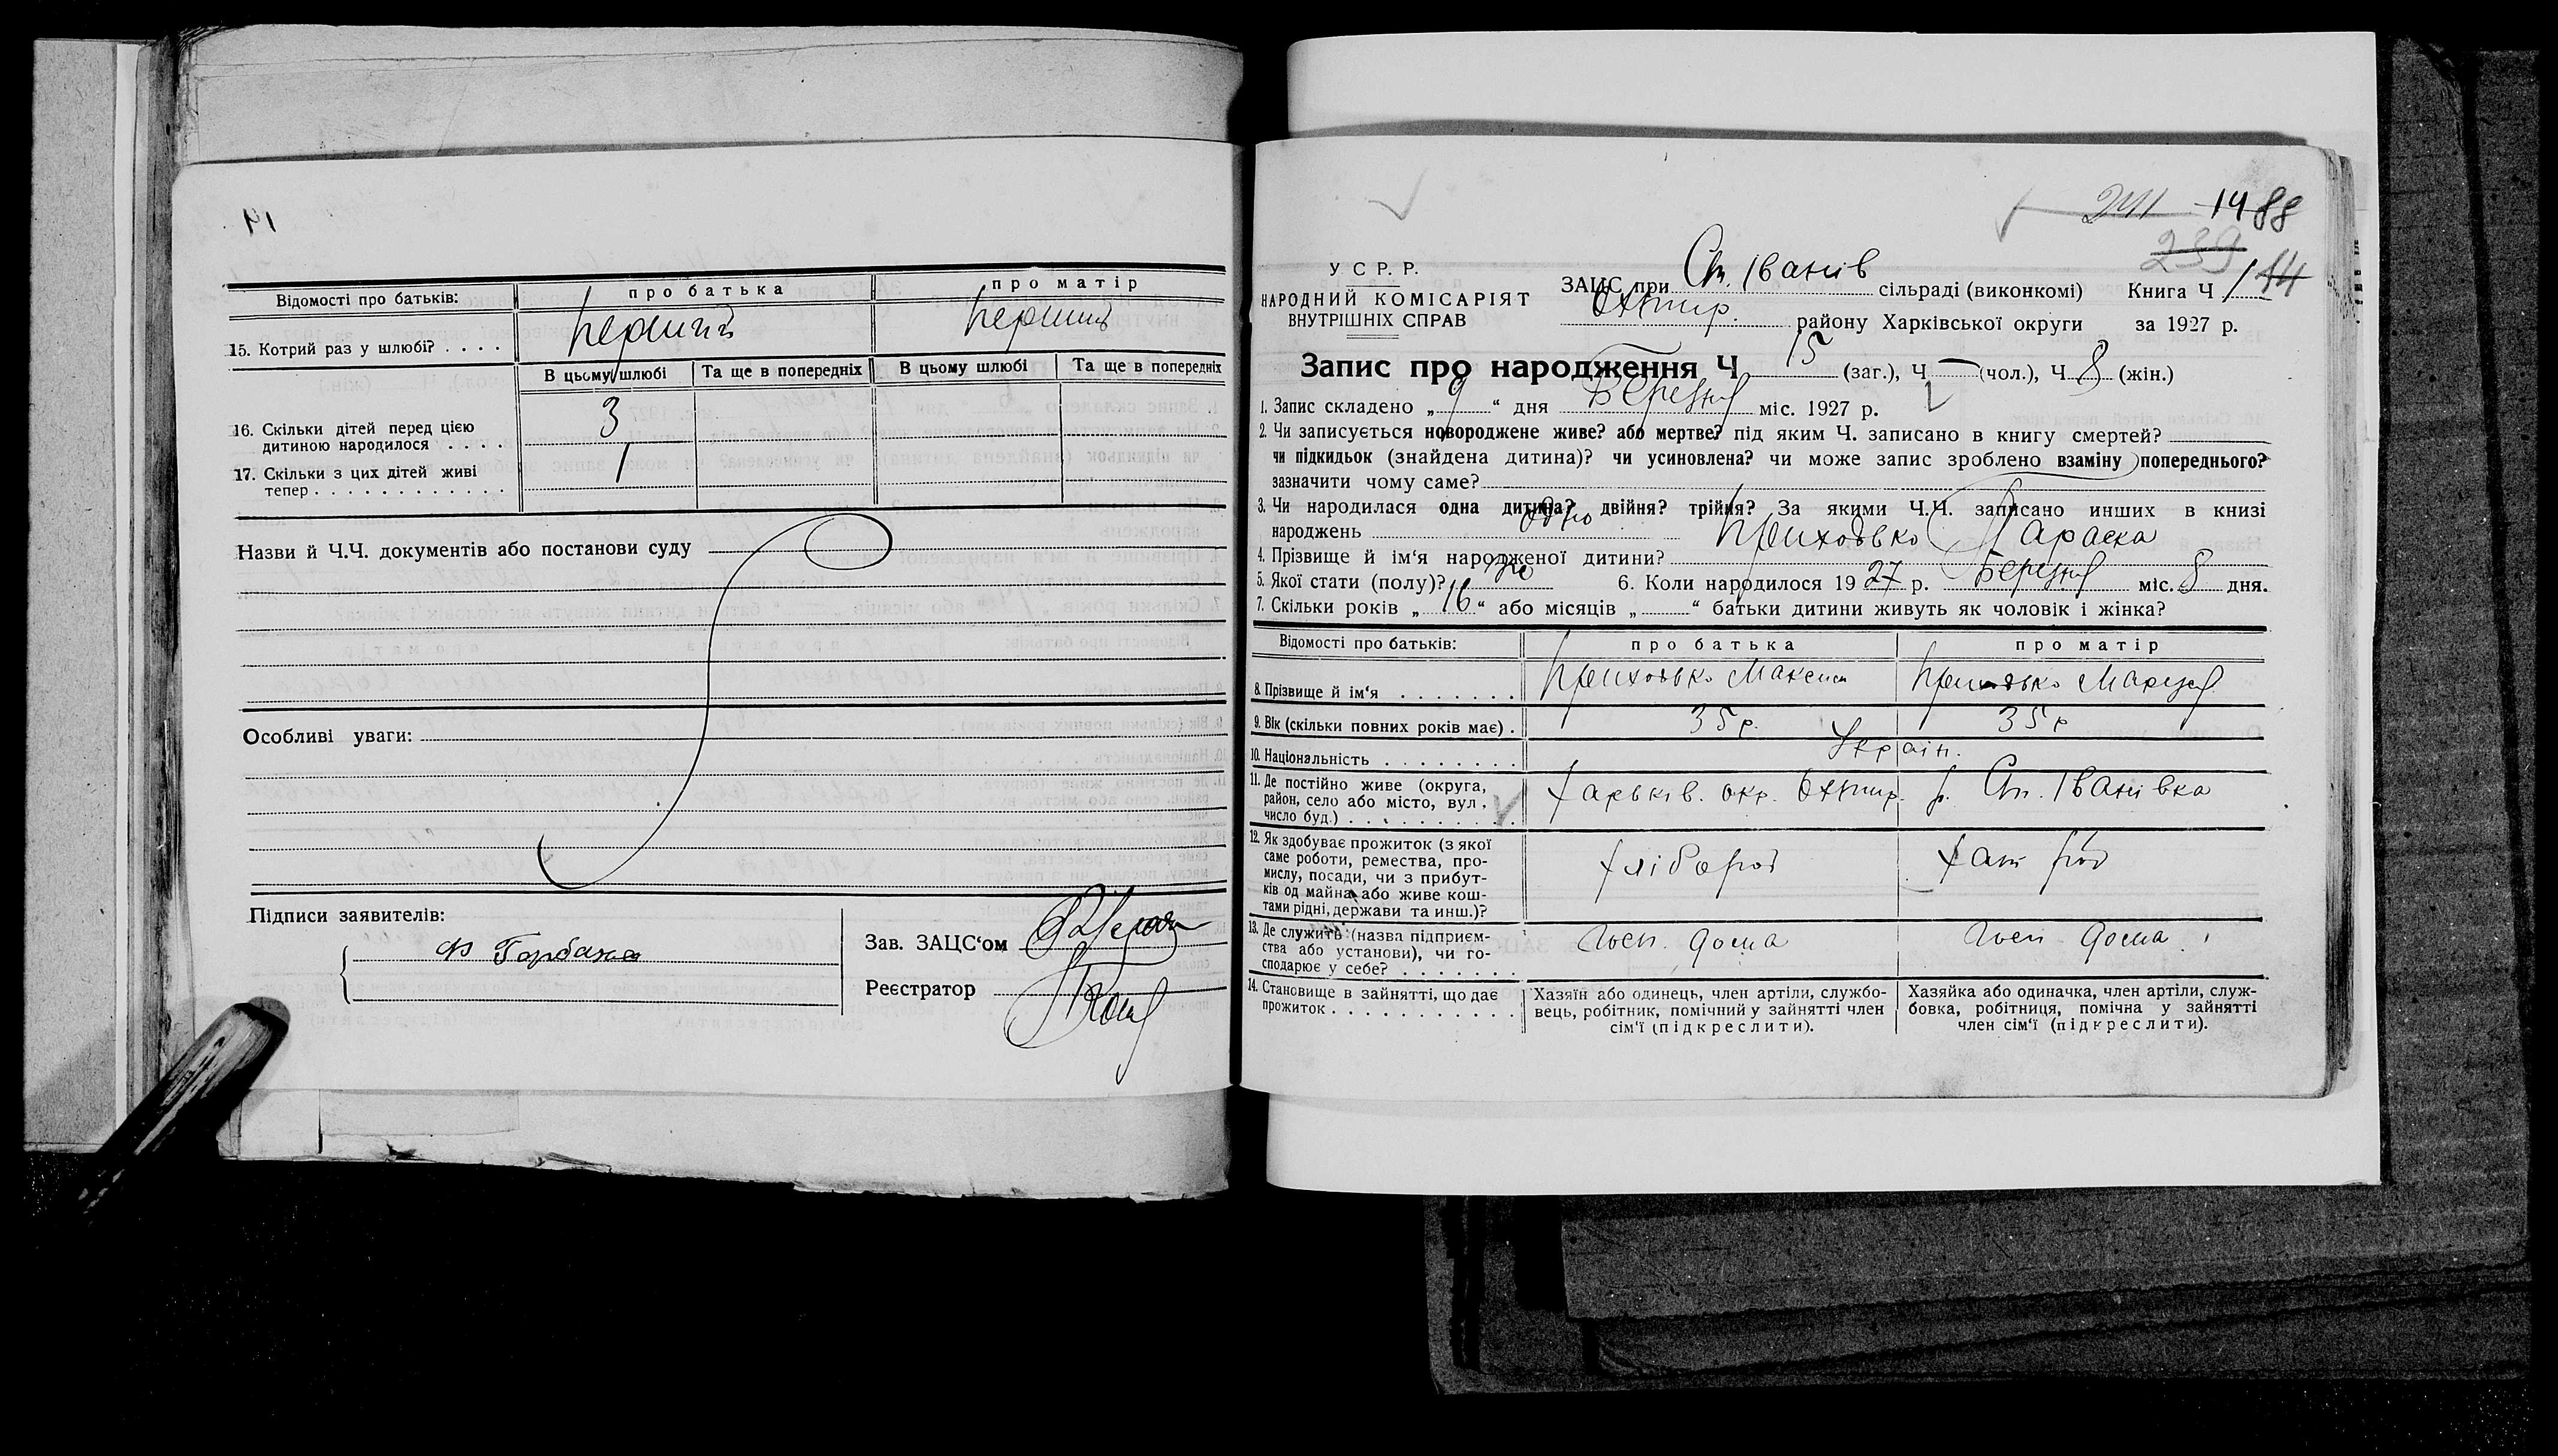 14
Відомості про батьків: про батька про матір
15. Котрий раз у шлюбі? . . . . перший перший
В цьому шлюбі Та ще в попередніх В цьому шлюбі Та ще в попередніх
16. Скільки дітей перед цією
дитиною народилося . . . . 3
17. Скільки з цих дітей живі
тепер . . . . . . . . . . . . 1
Назви й Ч.Ч. документів або постанови суду
Особливі уваги:
Підписи заявителів:
Зав. ЗАЦС‘ом
Реєстратор
241 14 88
239
У С Р. Р.
НАРОДНИЙ КОМІСАРІЯТ
ВНУТРІШНІХ СПРАВ
ЗАЦС при Ст. Іванів сільраді (виконкомі) Книга Ч 1 14
Охтир. району Харківської округи за 1927 р.
Запис про народження Ч 15 (заг.), Ч — (чол.), Ч 8 (жін.)
1. Запис складено „ 9 “ дня Березня міс. 1927 р.
2. Чи записується новороджене живе? або мертве? під яким Ч. записано в книгу смертей?
чи підкидьок (знайдена дитина)? чи усиновлена? чи може запис зроблено взаміну попереднього?
зазначити чому саме?
3. Чи народилася одна дитина? двійня? трійня? За якими Ч.Ч. записано инших в книзі
народжень одно
4. Прізвище й ім‘я народженої дитини? Приходько Параска
5. Якої стати (полу)? жін 6. Коли народилося 19 27 р. Березня міс. 8 дня.
7. Скільки років „ 16 “ або місяців „ “ батьки дитини живуть як чоловік і жінка?
Відомості про батьків: про батька про матір
8. Прізвище й ім‘я . . . . . . . Приходько Максим Приходько Мария
9. Вік (скільки повних років має) . 35 р. 35 р
10. Національність . . . . . . . . Україн.
11. Де постійно живе (округа,
район, село або місто, вул.,
число буд.) . . . . . . . . . Харьків. окр. Охтир. р. Ст. Іванівка
12. Як здобуває прожиток (з якої
саме роботи, ремества, про-
мислу, посади, чи з прибут-
ків од майна або живе кош-
тами рідні, держави та инш.)? хлібороб хат роб
13. Де служить (назва підприєм-
ства або установи), чи го-
сподарює у себе? . . . . . . . госп. дома госп дома
14. Становище в зайнятті, що дає
прожиток . . . . . . . . . . . .
Хазяїн або одинець, член артіли, службо-
вець, робітник, помічний у зайнятті член
сім‘ї (підкреслити).
Хазяйка або одиначка, член артіли, служ-
бовка, робітниця, помічна у зайнятті
член сім‘ї (підкреслити).